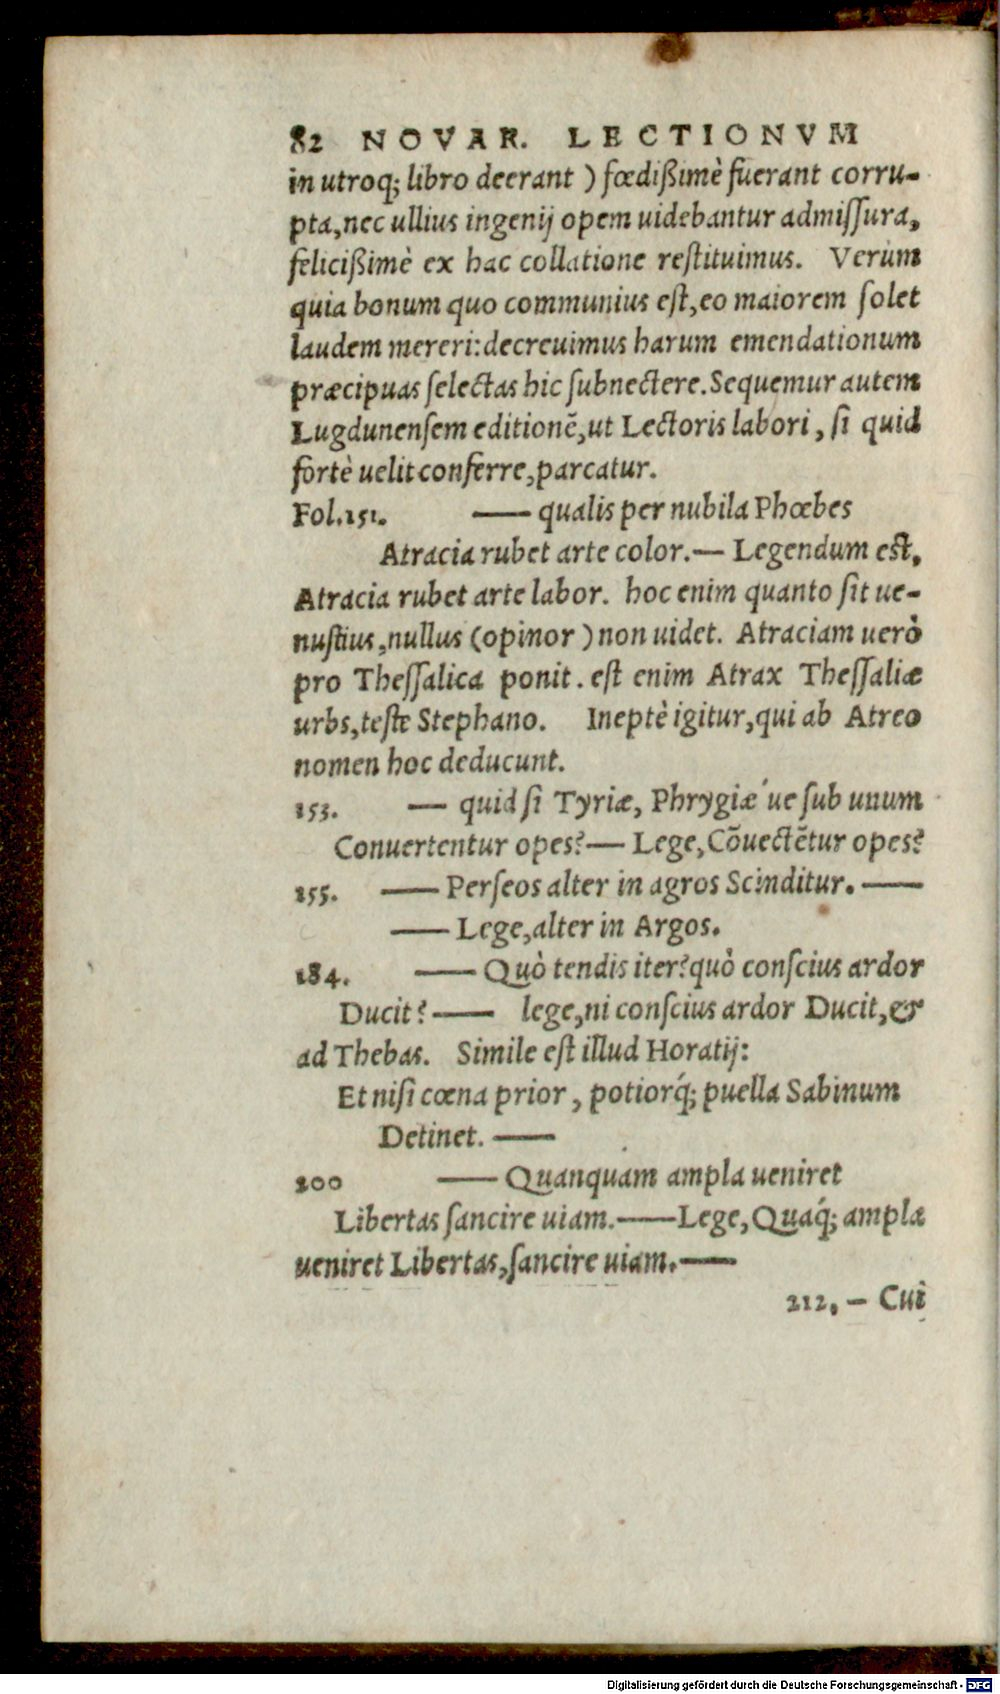 82 NOVAR. LECTIONVM
in utroq; libro deerant ) fœdißimè fuerant corru-
pta, nec ullius ingenij opem uidebantur admiſſura,
felicißimè ex hac collatione reſtituimus. Verùm
quia bonum quo communius eſt, eo maiorem ſolet
laudem mereri: decreuimus harum emendationum
præcipuas ſelectas hic ſubnectere. Sequemur autem
Lugdunenſem editionē, ut Lectoris labori, ſi quid
fortè uelit conferre, parcatur.
Fol. 151. — qualis per nubila Phœbes
Atracia rubet arte color. — Legendum eſt,
Atracia rubet arte labor. hoc enim quanto ſit ue-
nuſtius, nullus (opinor) non uidet. Atraciam uerò
pro Theſſalica ponit. eſt enim Atrax Theſſaliæ
urbs, teſte Stephano. Ineptè igitur, qui ab Atreo
nomen hoc deducunt.
153. — quid ſi Tyriæ, Phrygiæ ́ue ſub unum
Conuertentur opes? — Lege, Cōuectētur opes?
155. — Perſeos alter in agros Scinditur. —
— Lege, alter in Argos.
184. — Quò tendis iter? quò conſcius ardor
Ducit? — lege, ni conſcius ardor Ducit, &
ad Thebas. Simile eſt illud Horatij:
Et niſi cœna prior, potiorq́; puella Sabinum
Detinet. —
200 — Quanquam ampla ueniret
Libertas ſancire uiam. — Lege, Quaq́; ampla
ueniret Libertas, ſancire uiam. —
212. — Cui
Digitalisierung gefördert durch die Deutsche Forschungsgemeinschaft - DFG